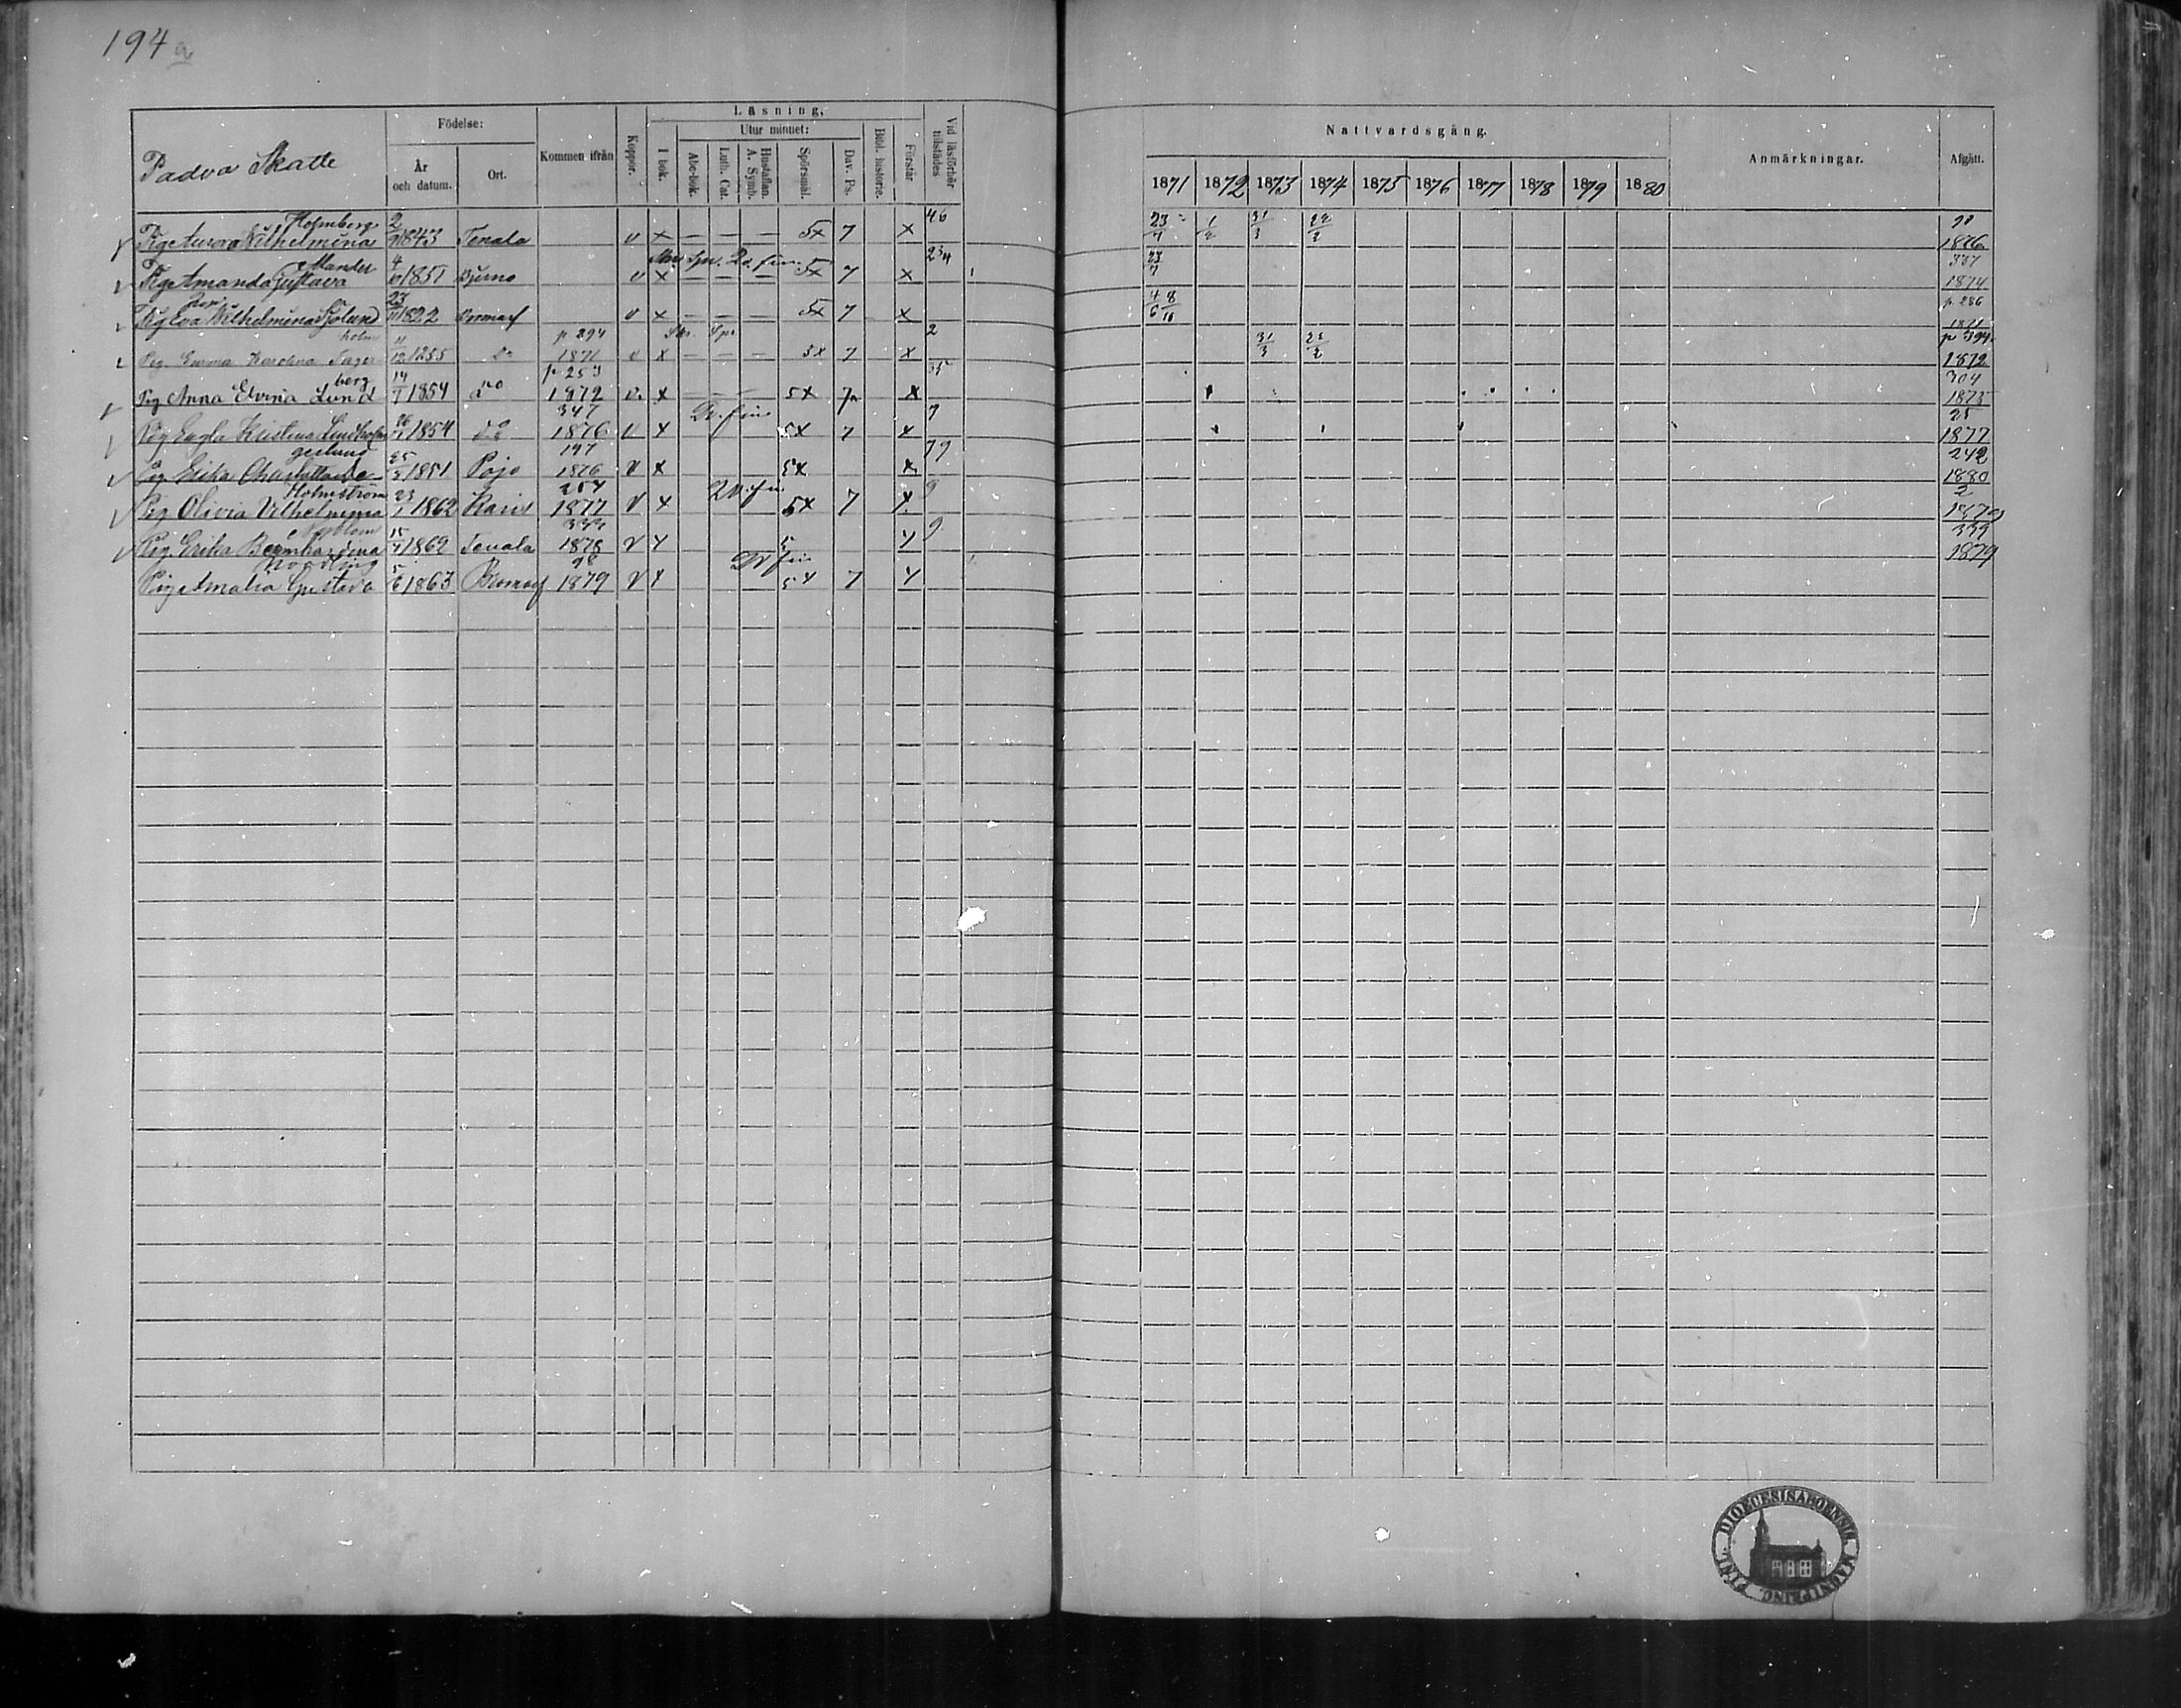 194
Läsning.
Födelse:
Utur minnet:
Nattvardsgång.
Padva Skatte
År och datum.
Ort.
Kommen ifrån
Koppor.
I bok.
Abc-bok.
Luth. Cat.
Hustaflan. A. Symb.
Spörsmål.
Dav. Ps.
Bibl. historie.
Förstår
Vid läsförhör tillstädes
1871 1872 1873 1874 1875 1876 1877 1878 1879 1880
Anmärkningar.
Afgått.
Holmberg 2 46 23 1 31
Pig Aurora Wilhelmina 1843 Tenala v x — — — 5x 7 x 1876
4 234 23 337
Pig Amanda Gustava 6 1851 Bjerno v x — — — 5x 7 x 7 1874
23 4 8 p. 286
Pig Eva Wilhelmina Sjölund 11 1822 Bromarf v x — — — 5x 7 x 6 10 1871
holm 11 p 294 2 31 p 394
Pig Emma Karolina Fager 12 1855 Do 1871 v x — — — 5x 7 x 3 1872
berg 14 p 253 35 304
Pig Anna Elvina Lund 1 1854 do 1872 v x — — — 5x 7 x 1875
347 7 25
Pig Engla Kristina Lindholm 1854 do 1876 v x 5x 7 x 1877
gerlund 25 147 79 242
Pig Erika Charlotta Se- 3 1851 Pojo 1876 v x 5x x 1880
Holmström 23 254 9 2
Pig Olivia Vilhelmina 1 1862 Karis 1877 v x 5x 7 x
Nyblom 15 333 9 339
Pig Erika Bernhardina 4 1862 Tenala 1878 v x 5 x 1879
Nordling 5 98
Pig Amalia Gustava 6 1863 Bromarf 1879 v x 5x 7 x
DIOECESIS ABOENSIS